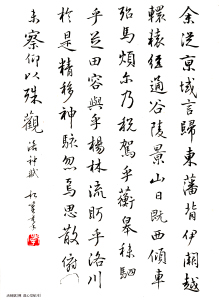 余從京域言歸東藩背伊闕越
轘轅經通谷陵景山日既西傾車
殆馬煩尔乃税駕乎蘅皋秣駟
乎芝田容與乎楊林流眄乎洛川
於是精移神駭忽焉思散俯
未察仰以殊觀
洛神賦